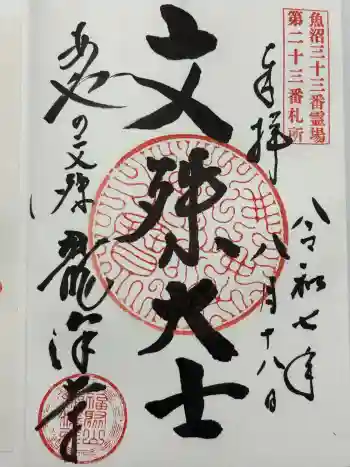 魚沼三十三番霊場
第二十三番札所
奉拝
令和七年
八月十八日
文殊大士
あやの文殊
龍澤寺